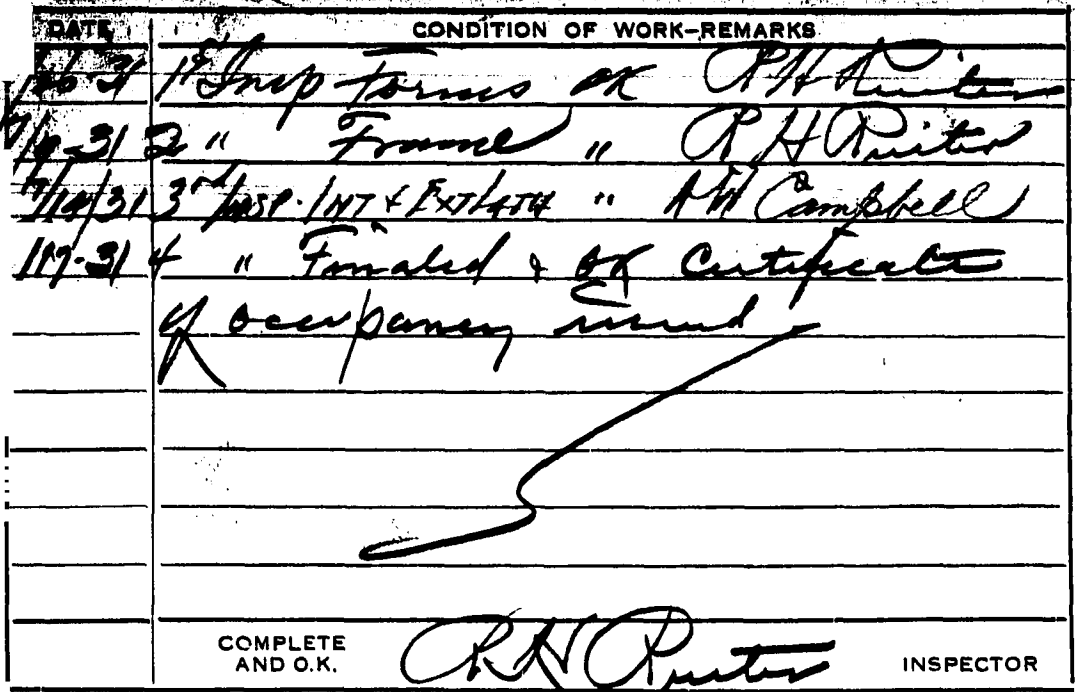 DATE CONDITION OF WORK-REMARKS
1st Insp Forms OK R H Ruiter
2 " Frame " R H Ruiter
7/14/31 3rd INSP. INT & EXT LATH " A W Campbell
4 " Finaled & OK Certificate
of occupancy issued
COMPLETE
AND O.K. R H Ruiter INSPECTOR